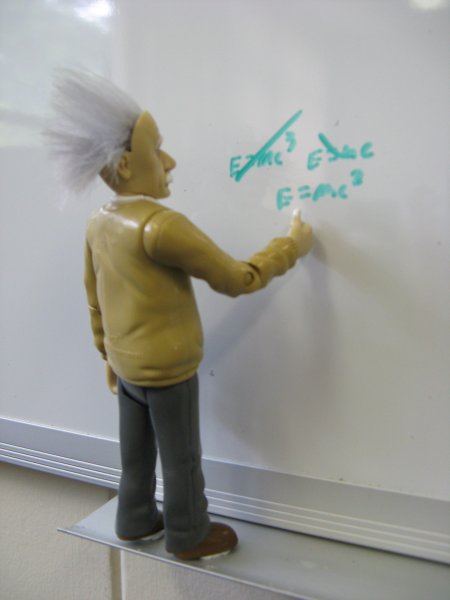 E=mc³ E>mc
E=mc²